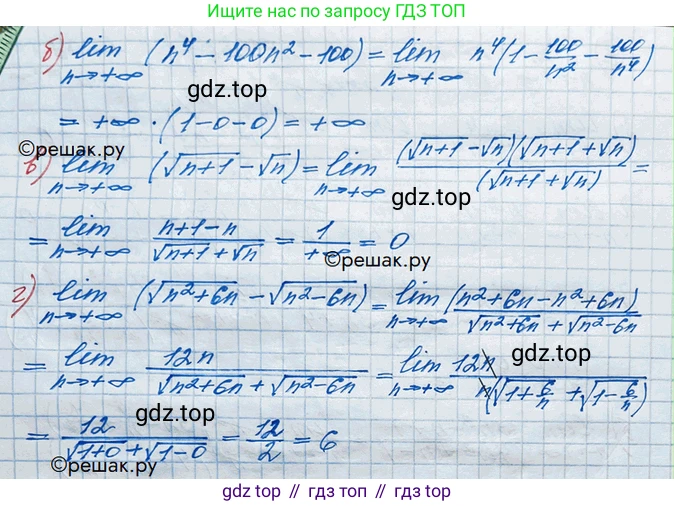 Ищите нас по запросу ГДЗ ТОП
б) lim n→+∞ (n⁴ - 100n² - 100) = lim n→+∞ n⁴(1 - 100/n² - 100/n⁴)
gdz.top
= +∞ · (1-0-0) = +∞
©решак.ру
в) lim n→+∞ (√(n+1) - √n) = lim n→+∞ (√(n+1) - √n)(√(n+1) + √n)/(√(n+1) + √n) =
gdz.top
= lim n→+∞ (n+1-n)/(√(n+1) + √n) = 1/+∞ = 0
©решак.ру
г) lim n→+∞ (√(n²+6n) - √(n²-6n)) = lim n→+∞ (n²+6n-n²+6n)/(√(n²+6n) + √(n²-6n))
gdz.top
= lim n→+∞ 12n/(√(n²+6n) + √(n²-6n)) = lim n→+∞ 12n/(n(√(1+6/n) + √(1-6/n)))
gdz.top
= 12/(√(1+0) + √(1-0)) = 12/2 = 6
©решак.ру
gdz top // гдз топ // gdz.top